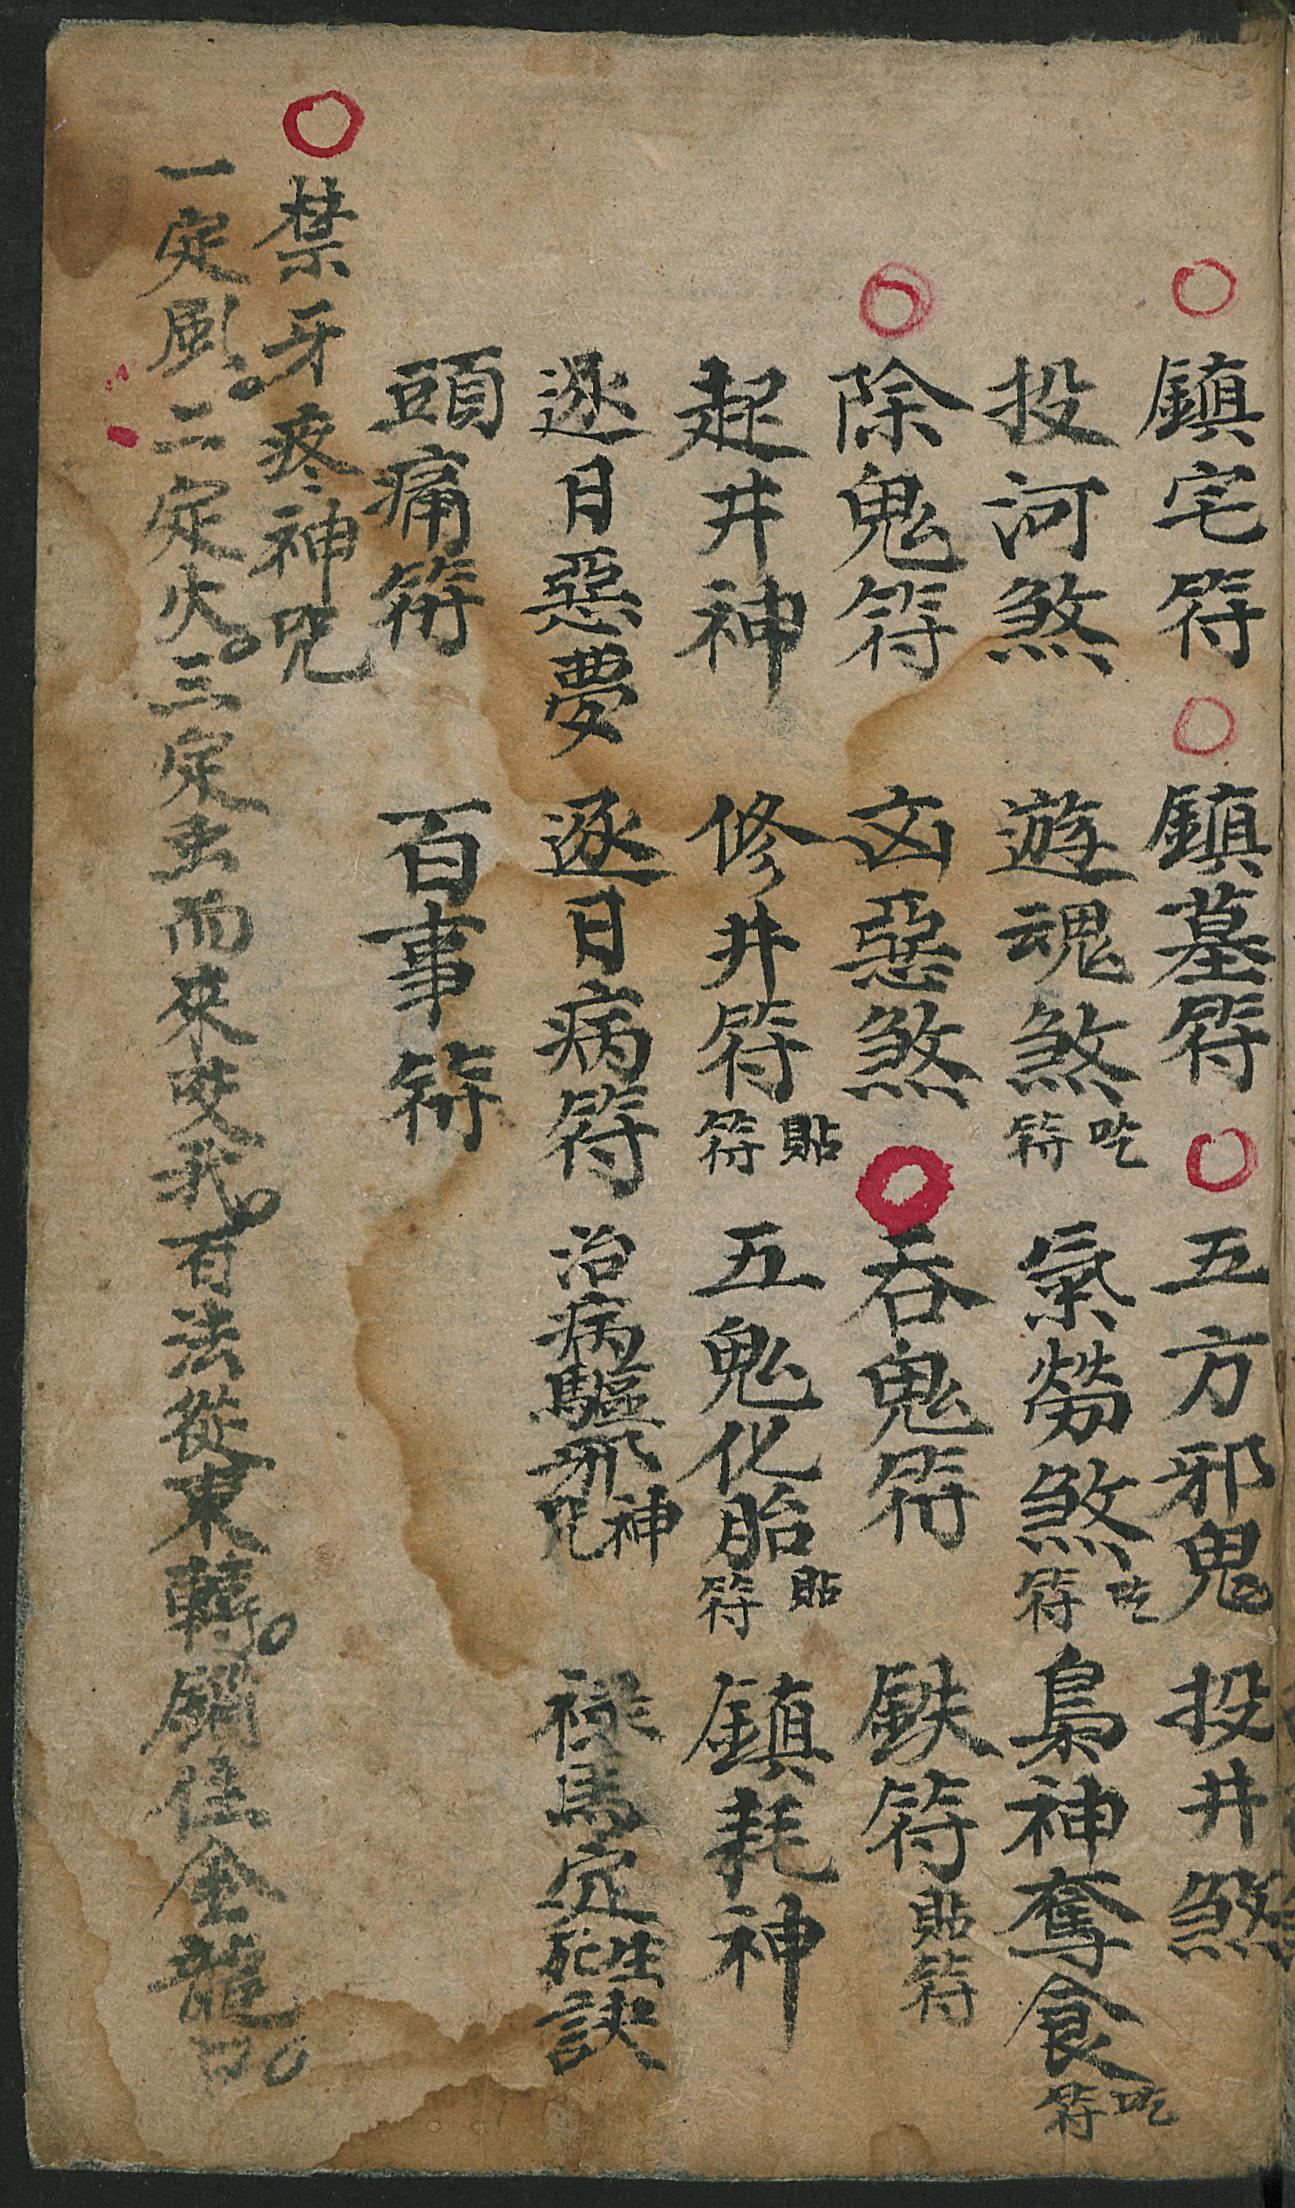 鎮宅符 鎮墓符 五方邪鬼 投井煞
投河煞 遊魂煞吃符 氣勞煞吃符 梟神奪食吃符
除鬼符 凶惡煞 吞鬼符 鉄符貼符
起井神 修井符貼符 五鬼化胎貼符 鎮耗神
逐月惡夢 逐日病符 治病驅邪神咒 祿馬定生死訣
頭痛符 百事符
禁牙疼神咒
一定風。二定火。三定虫而來咬我。有法從東轉。鎖住金龍口。